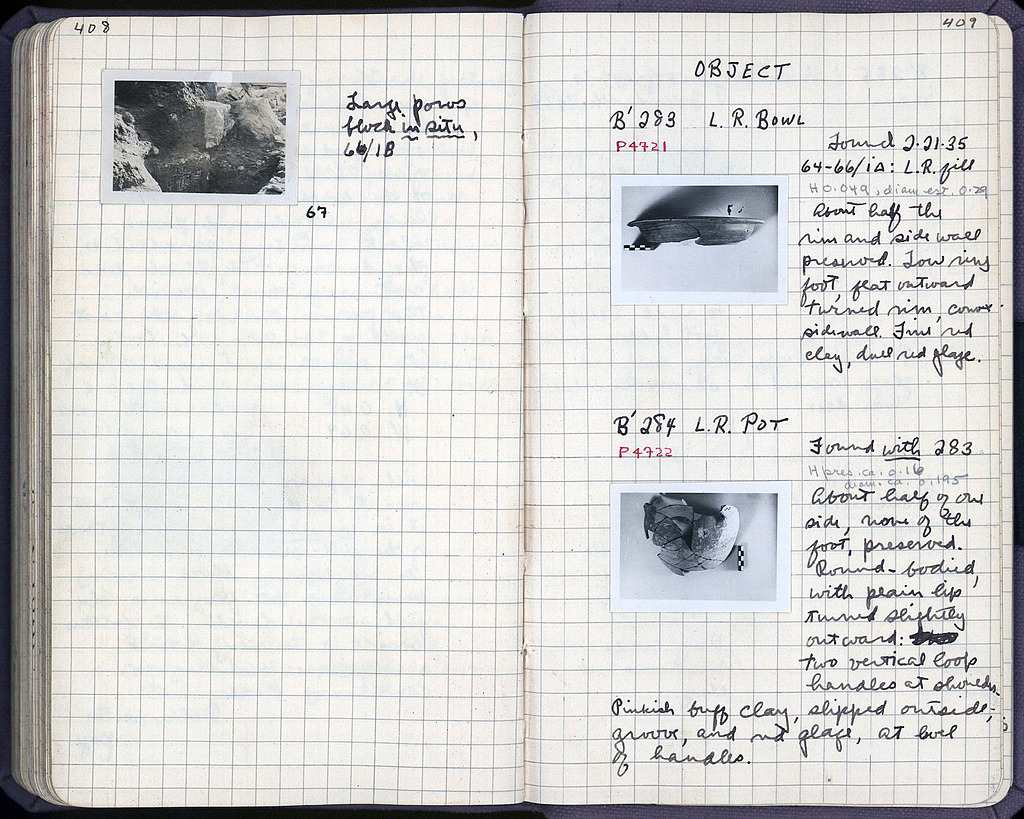 408
Large poros
block in situ,
66/ΙΒ
67
409
OBJECT
B' 283 L. R. BOWL
P4721
Found 2.21.35
64-66/ΙΔ: L.R. fill
H 0.049, diam. est. 0.29
About half the
rim and side wall
preserved. Low ring
foot, flat outward
turned rim, convex
sidewall. Fine red
clay, dull red glaze.
B' 284 L.R. POT
P4722
Found with 283
H pres. ca. 0.16
diam. ca. 0.195
About half of one
side, none of the
foot, preserved.
Round-bodied,
with plain lip
turned slightly
outward:
two vertical loop
handles at shoulder.
Pinkish buff clay, slipped outside;
groove, and red glaze, at level
of handles.